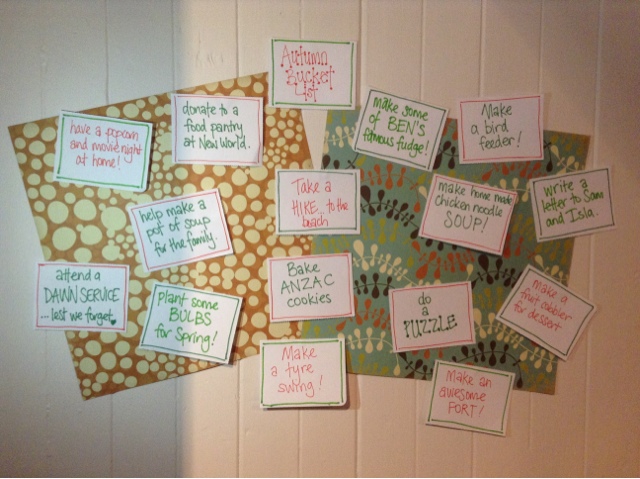 Autumn
Bucket
List
have a popcorn
and movie night
at home!
donate to a
food pantry
at New World.
make some
of BEN'S
famous fudge!
Make
a bird
feeder!
help make a
pot of soup
for the family.
Take a
HIKE... to the
beach
make home made
chicken noodle
SOUP!
write a
letter to Sam
and Isla.
attend a
DAWN SERVICE
...lest we forget
plant some
BULBS
for Spring!
Bake
ANZAC
cookies
do
a
PUZZLE
make a
fruit cobbler
for dessert
Make
a tyre
swing!
Make an
awesome
FORT!